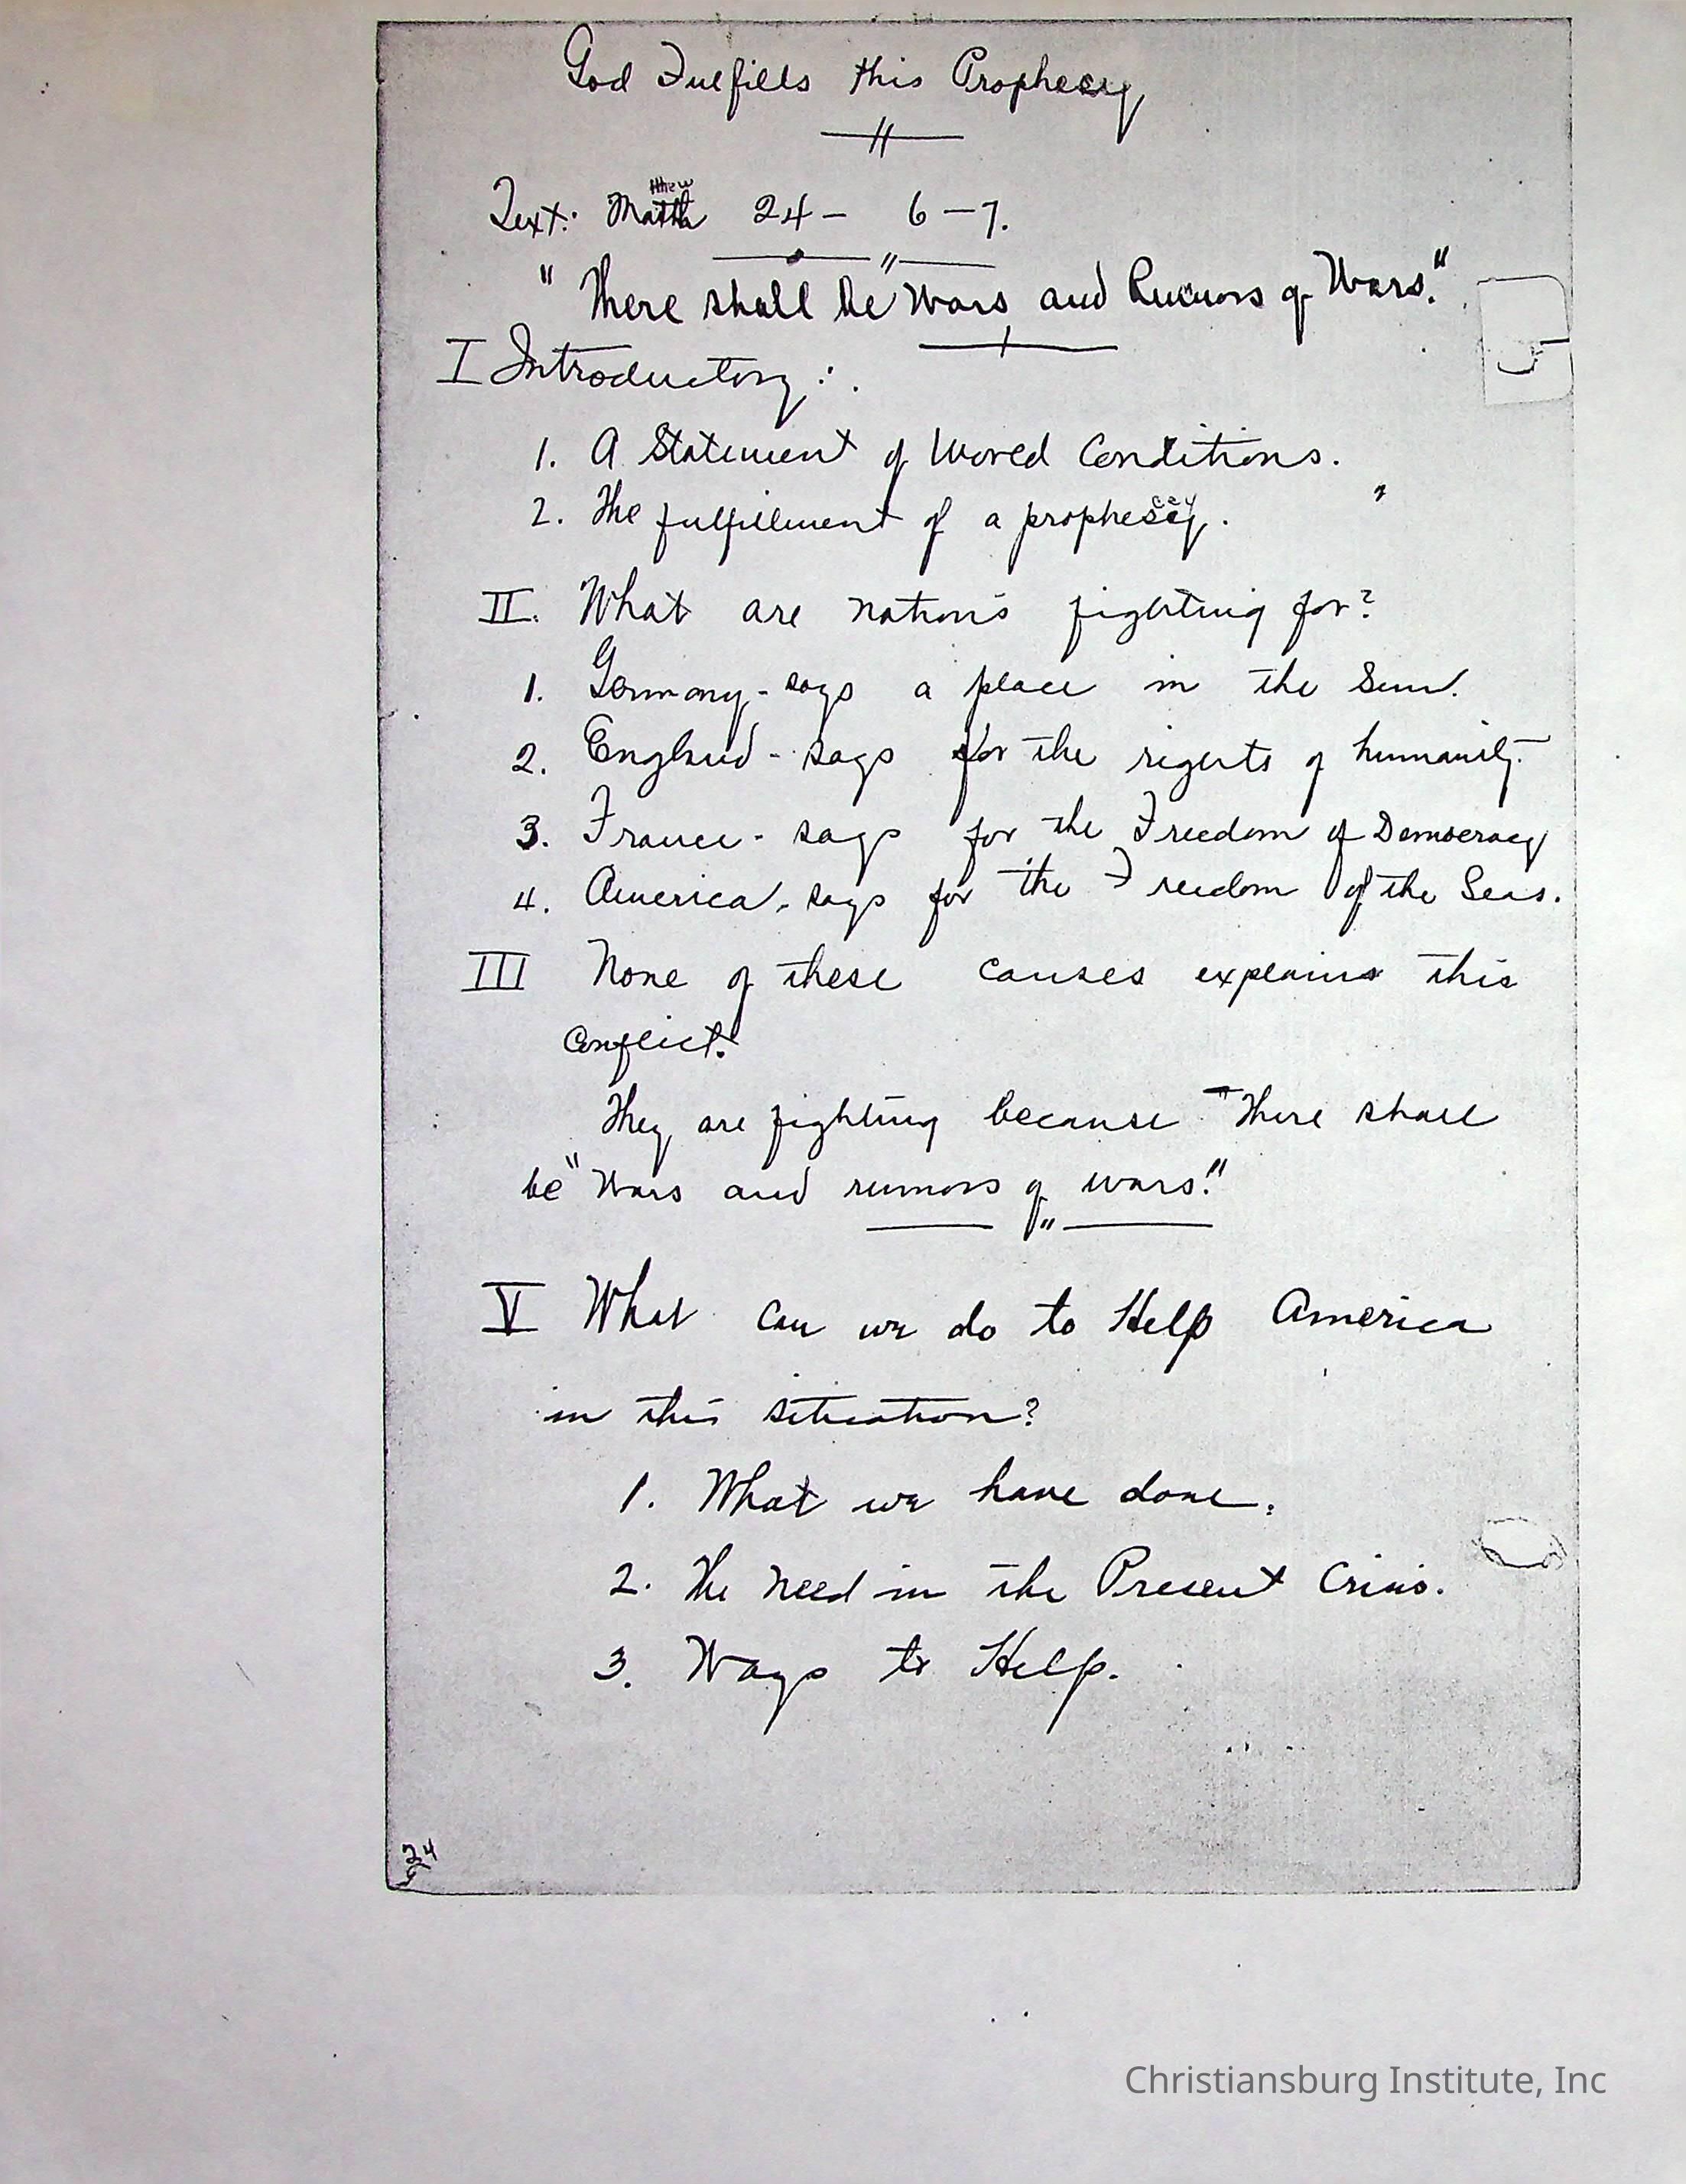 God Fulfills this Prophecy
Text: Matthew 24 - 6-7.
"There shall be Wars and Rumors of Wars."
I Introductory:
1. A Statement of World Conditions.
2. The fulfillment of a prophecy.
II. What are nations fighting for?
1. Germany - says a place in the Sun.
2. England - says for the rights of humanity.
3. France - says for the Freedom of Democracy
4. America, says for the Freedom of the Seas.
III None of these causes explains this
Conflict.
They are fighting because "There shall
be "Wars and rumors of wars."
V What can we do to Help America
in this situation?
1. What we have done.
2. The need in the Present Crisis.
3. Ways to Help.
24
Christiansburg Institute, Inc